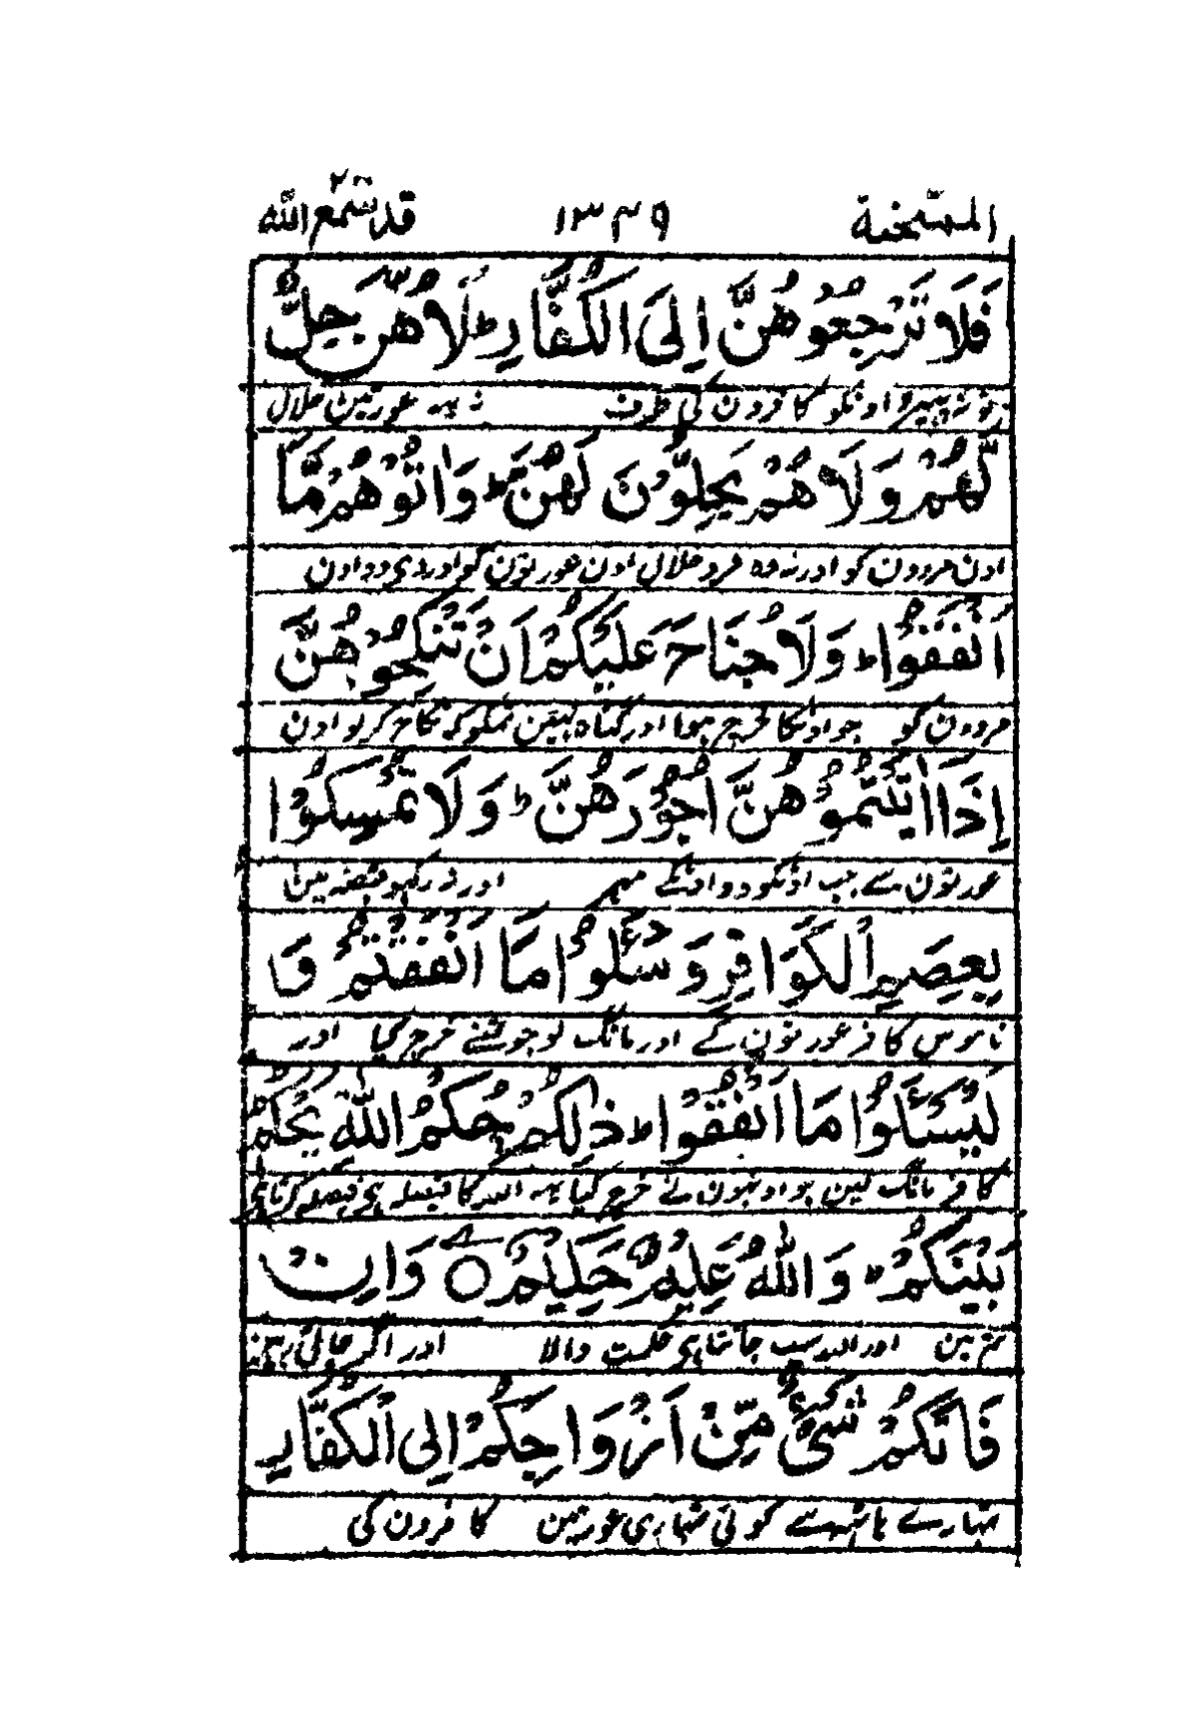 الممتحنة ١٣٤٩ قد سمع الله ٢٨
فَلَا تَرْجِعُوْهُنَّ اِلَى الْكُفَّارِ ؕ لَا هُنَّ حِلٌّ
تو نہ پھیرو اونکو کافرون کی طرف نہ یہہ عورتین حلال
لَّهُمْ وَلَا هُمْ يَحِلُّوْنَ لَهُنَّ ؕ وَاٰتُوْهُمْ مَّاۤ
اون مردون کو اور نہ وہ مرد حلال اون عورتون کو اور دی دو اون
اَنْفَقُوْا ؕ وَلَا جُنَاحَ عَلَيْكُمْ اَنْ تَنْكِحُوْهُنَّ
مردون کو جو اونکا خرچ ہوا اور گناہ نہین تمکو کہ نکاح کرلو اون
اِذَاۤ اٰتَيْتُمُوْهُنَّ اُجُوْرَهُنَّ ؕ وَلَا تُمْسِكُوْا
عورتون سے جب اونکو دو اونکے مہر اور نہ رکہو قبضہ مین
بِعِصَمِ الْكَوَافِرِ وَسْـَٔلُوْا مَاۤ اَنْفَقْتُمْ وَ
ناموس کافر عورتون کے اور مانگ لو جو تمنے خرچ کیا اور
لْيَسْـَٔلُوْا مَاۤ اَنْفَقُوْا ؕ ذٰلِكُمْ حُكْمُ اللّٰهِ يَحْكُمُ
کافر مانگ لین جو اونہون نے خرچ کیا یہہ اللہ کا فیصلہ ہی فیصلہ کرتا ہی
بَيْنَكُمْ ؕ وَاللّٰهُ عَلِيْمٌ حَكِيْمٌ ○ وَاِنْ
تم مین اور اللہ سب جانتا ہی حکمت والا اور اگر جاتی رہین
فَاتَكُمْ شَىْءٌ مِّنْ اَزْوَاجِكُمْ اِلَى الْكُفَّارِ
تمہارے ہاتہہ سے کوئی تمہاری عورتین کافرون کی